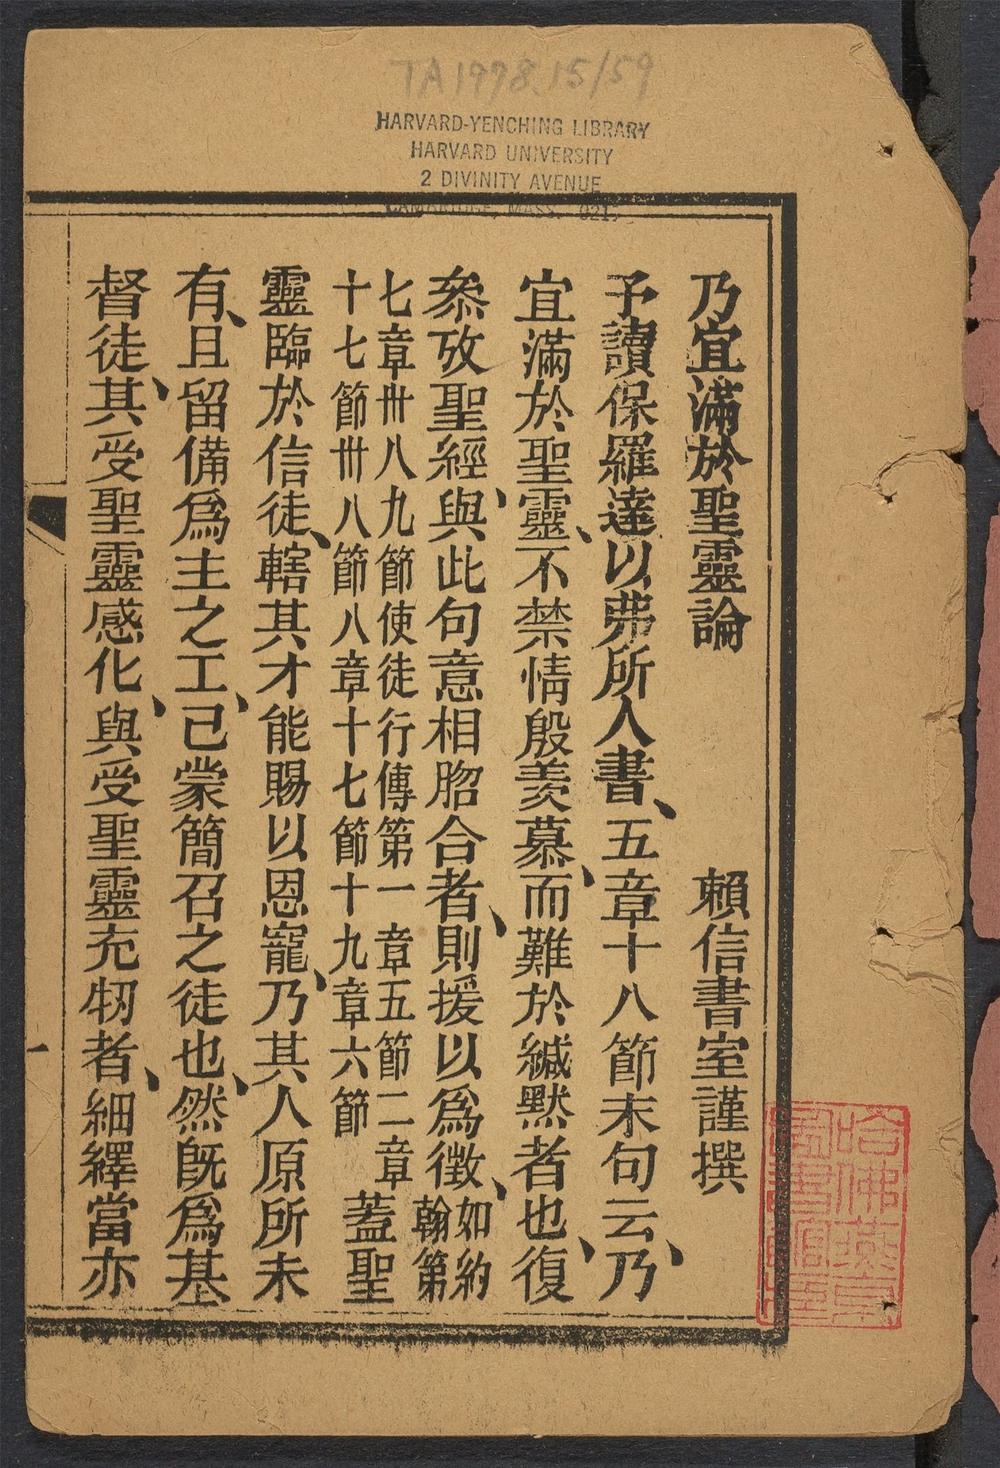 TA 1978.15/59
HARVARD-YENCHING LIBRARY
HARVARD UNIVERSITY
2 DIVINITY AVENUE
CAMBRIDGE, MASS. 021
乃宜滿於聖靈論 賴信書室謹撰
予讀保羅達以弗所人書、五章十八節末句云、乃
宜滿於聖靈、不禁情殷羨慕、而難於緘默者也、復
叅攷聖經、與此句意相脗合者、則援以爲徵、如約翰第
七章卅八九節使徒行傳第一章五節二章
十七節卅八節八章十七節十九章六節
蓋聖
靈臨於信徒、轄其才能賜以恩寵、乃其人原所未
有、且留備爲主之工、已蒙簡召之徒也、然旣爲基
督徒、其受聖靈感化、與受聖靈充牣者、細繹當亦
哈佛燕京
圖書館